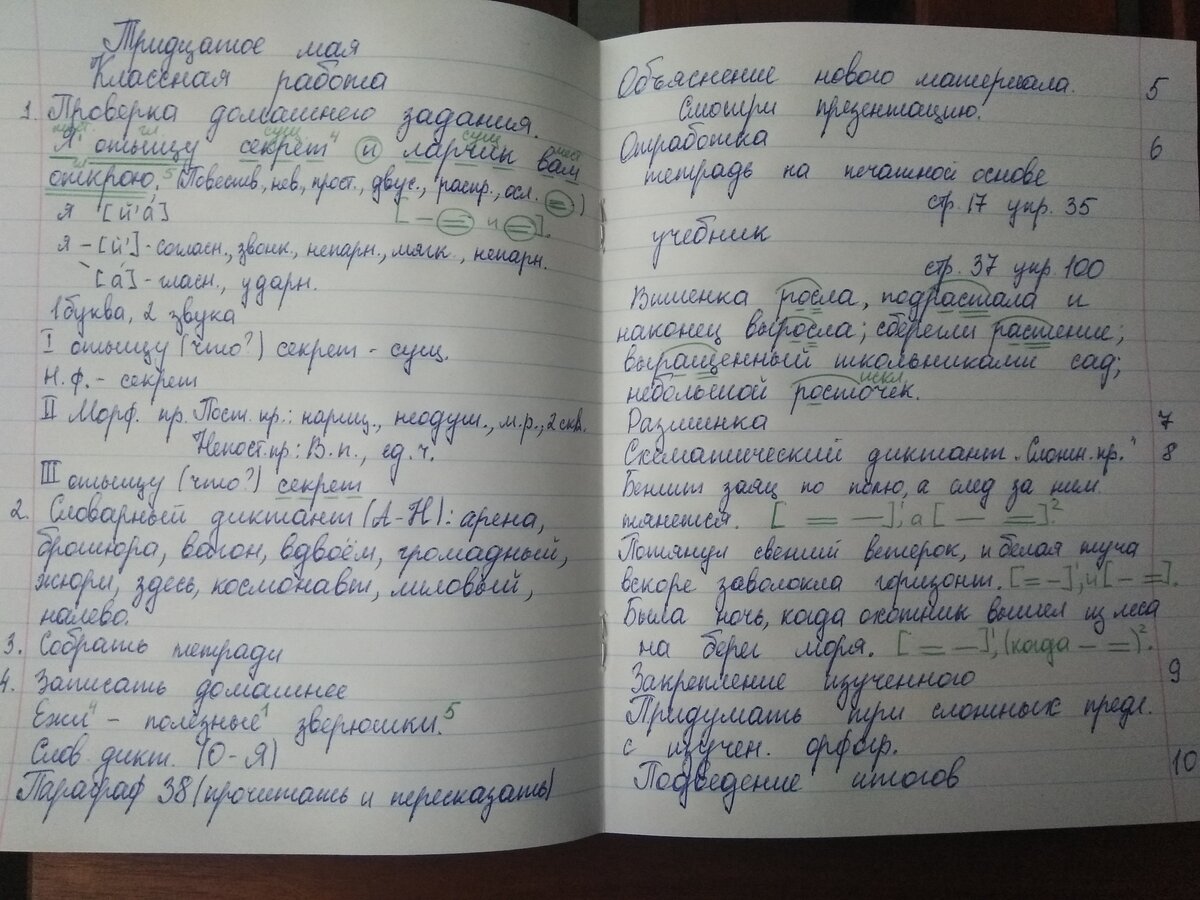 Тридцатое мая
Классная работа
1. Проверка домашнего задания.
мест. гл. сущ. сущ. мест
Я¹ отыщу секрет⁴ и ларчик вам
гл
открою.⁵ (Повеств., нев., прост., двус., распр., осл. =)
я [й'а́] [– = и =].
я – [й'] - согласн., звонк., непарн., мягк., непарн.
[а́] - гласн., ударн.
1 буква, 2 звука
I отыщу (что?) секрет - сущ.
Н.ф. - секрет
II Морф. пр. Пост. пр.: нариц., неодуш., м.р., 2 скл.
Непост. пр: В.п., ед.ч.
III отыщу (что?) секрет
2. Словарный диктант (А-Н): арена,
брошюра, вагон, вдвоём, громадный,
жюри, здесь, космонавт, лиловый,
налево.
3. Собрать тетради
4. Записать домашнее
Ежи⁴ – полезные¹ зверюшки.⁵
Слов. дикт. (О-Я)
Параграф 38 (прочитать и пересказать)
Объяснение нового материала. 5
Смотри презентацию.
Отработка 6
тетрадь на печатной основе
стр. 17 упр. 35
учебник
стр. 37 упр. 100
Вишенка росла, подрастала и
наконец выросла; сберегли растение;
выращенный школьниками сад;
искл
небольшой росточек.
Разминка 7
Схематический диктант „Сложн. пр." 8
Бежит заяц по полю, а след за ним
тянется. [= –]¹, а [– =]².
Потянул свежий ветерок, и белая туча
вскоре заволокла горизонт. [= –]¹, и [– =].
Была ночь, когда охотник вышел из леса
на берег моря. [= –]¹, (когда – =)².
Закрепление изученного 9
Придумать три сложных предл.
с изучен. орфогр.
Подведение итогов 10